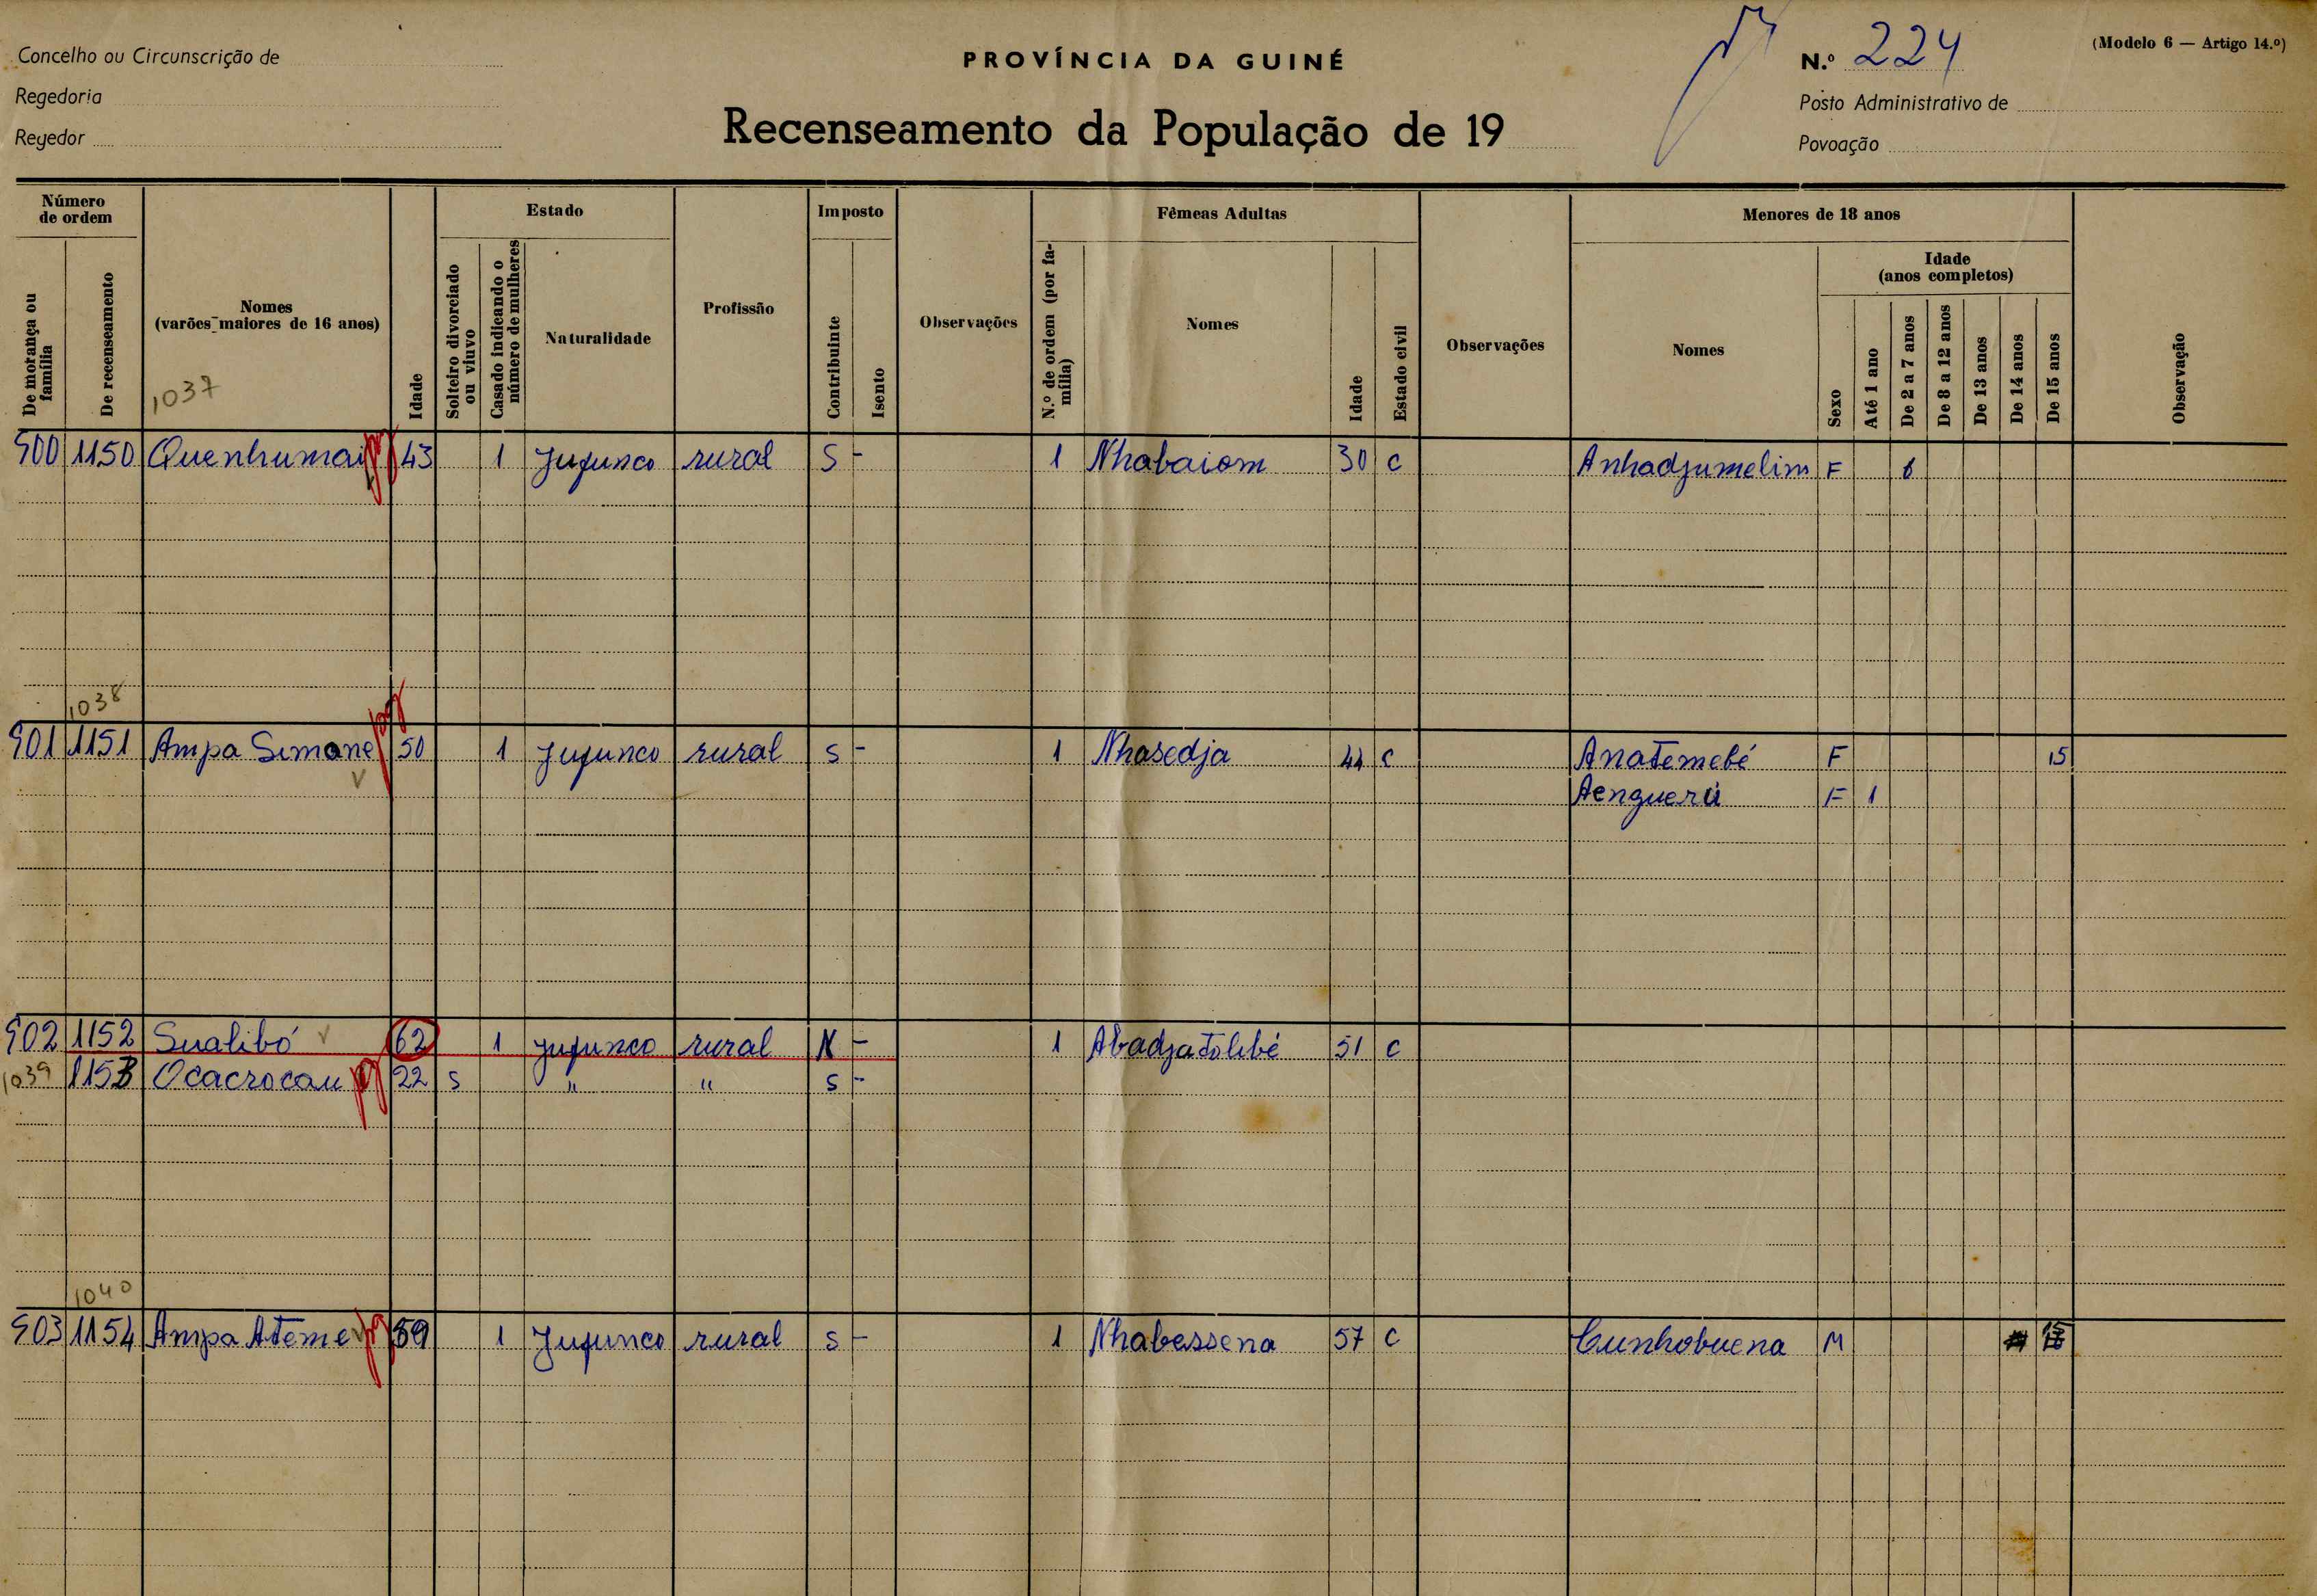 Concelho ou Circunscrição de
Regedoria
Regedor
PROVÍNCIA DA GUINÉ
Recenseamento da População de 19
N.º 224
(Modelo 6 — Artigo 14.º)
Posto Administrativo de
Povoação
Número de ordem
De morança ou família
De recenseamento
Nomes
(varões maiores de 16 anos)
1037
Idade
Estado
Solteiro divorciado ou viuvo
Casado indicando o número de mulheres
Naturalidade
Profissão
Imposto
Contribuinte
Isento
Observações
Fêmeas Adultas
N.º de ordem (por família)
Nomes
Idade
Estado civil
Observações
Menores de 18 anos
Nomes
Sexo
Idade
(anos completos)
Até 1 ano
De 2 a 7 anos
De 8 a 12 anos
De 13 anos
De 14 anos
De 15 anos
Observação
900 1150 Quenhumai 43 1 Jufunco rural S - 1 Nhabaiom 30 C Anhadjumelim F 6
1038
901 1151 Ampa Simone 50 1 Jufunco rural S - 1 Nhasedja 44 C Anatemebé F 15
Aenguerú F 1
902 1152 Sualibó 62 1 Jufunco rural N - 1 Abadjatolibé 51 C
1039 1153 Ocacrocau 22 S " " S -
1040
903 1154 Ampa Ateme 59 1 Jufunco rural S - 1 Nhabessena 57 C Cunhobuena M